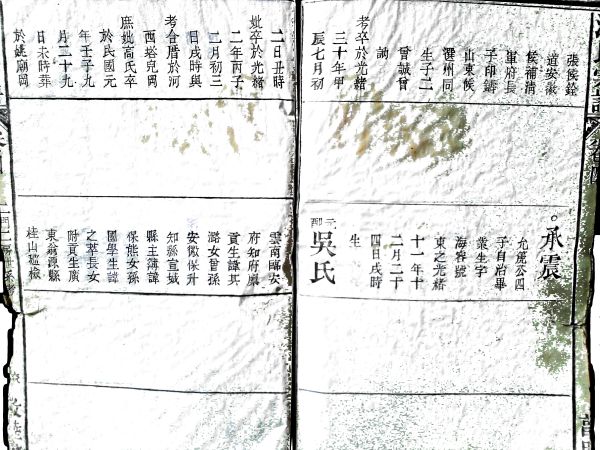 張候銓
道安徽
候補清
軍府長
子印鑄
山東候
選州同
生子二
曾誠曾
詢
考卒於光緒
三十年甲
辰七月初
二日丑時
妣卒於光緒
二年丙子
二月初三
日戌時與
考合厝於河
西塔兒岡
庶妣高氏卒
於民國元
年壬子九
月二十九
日未時葬
於姚廟岡
承震
允薦公四
子自治畢
業生字
海容號
東之光緒
十一年十
二月二十
四日戌時
生
元配
吳氏
雲南臨安
府知府廩
貢生諱其
潞女曾孫
安徽保升
知縣宣城
縣主簿諱
保熊女孫
國學生諱
之萃長女
附貢生廣
東翁源縣
桂山巡檢